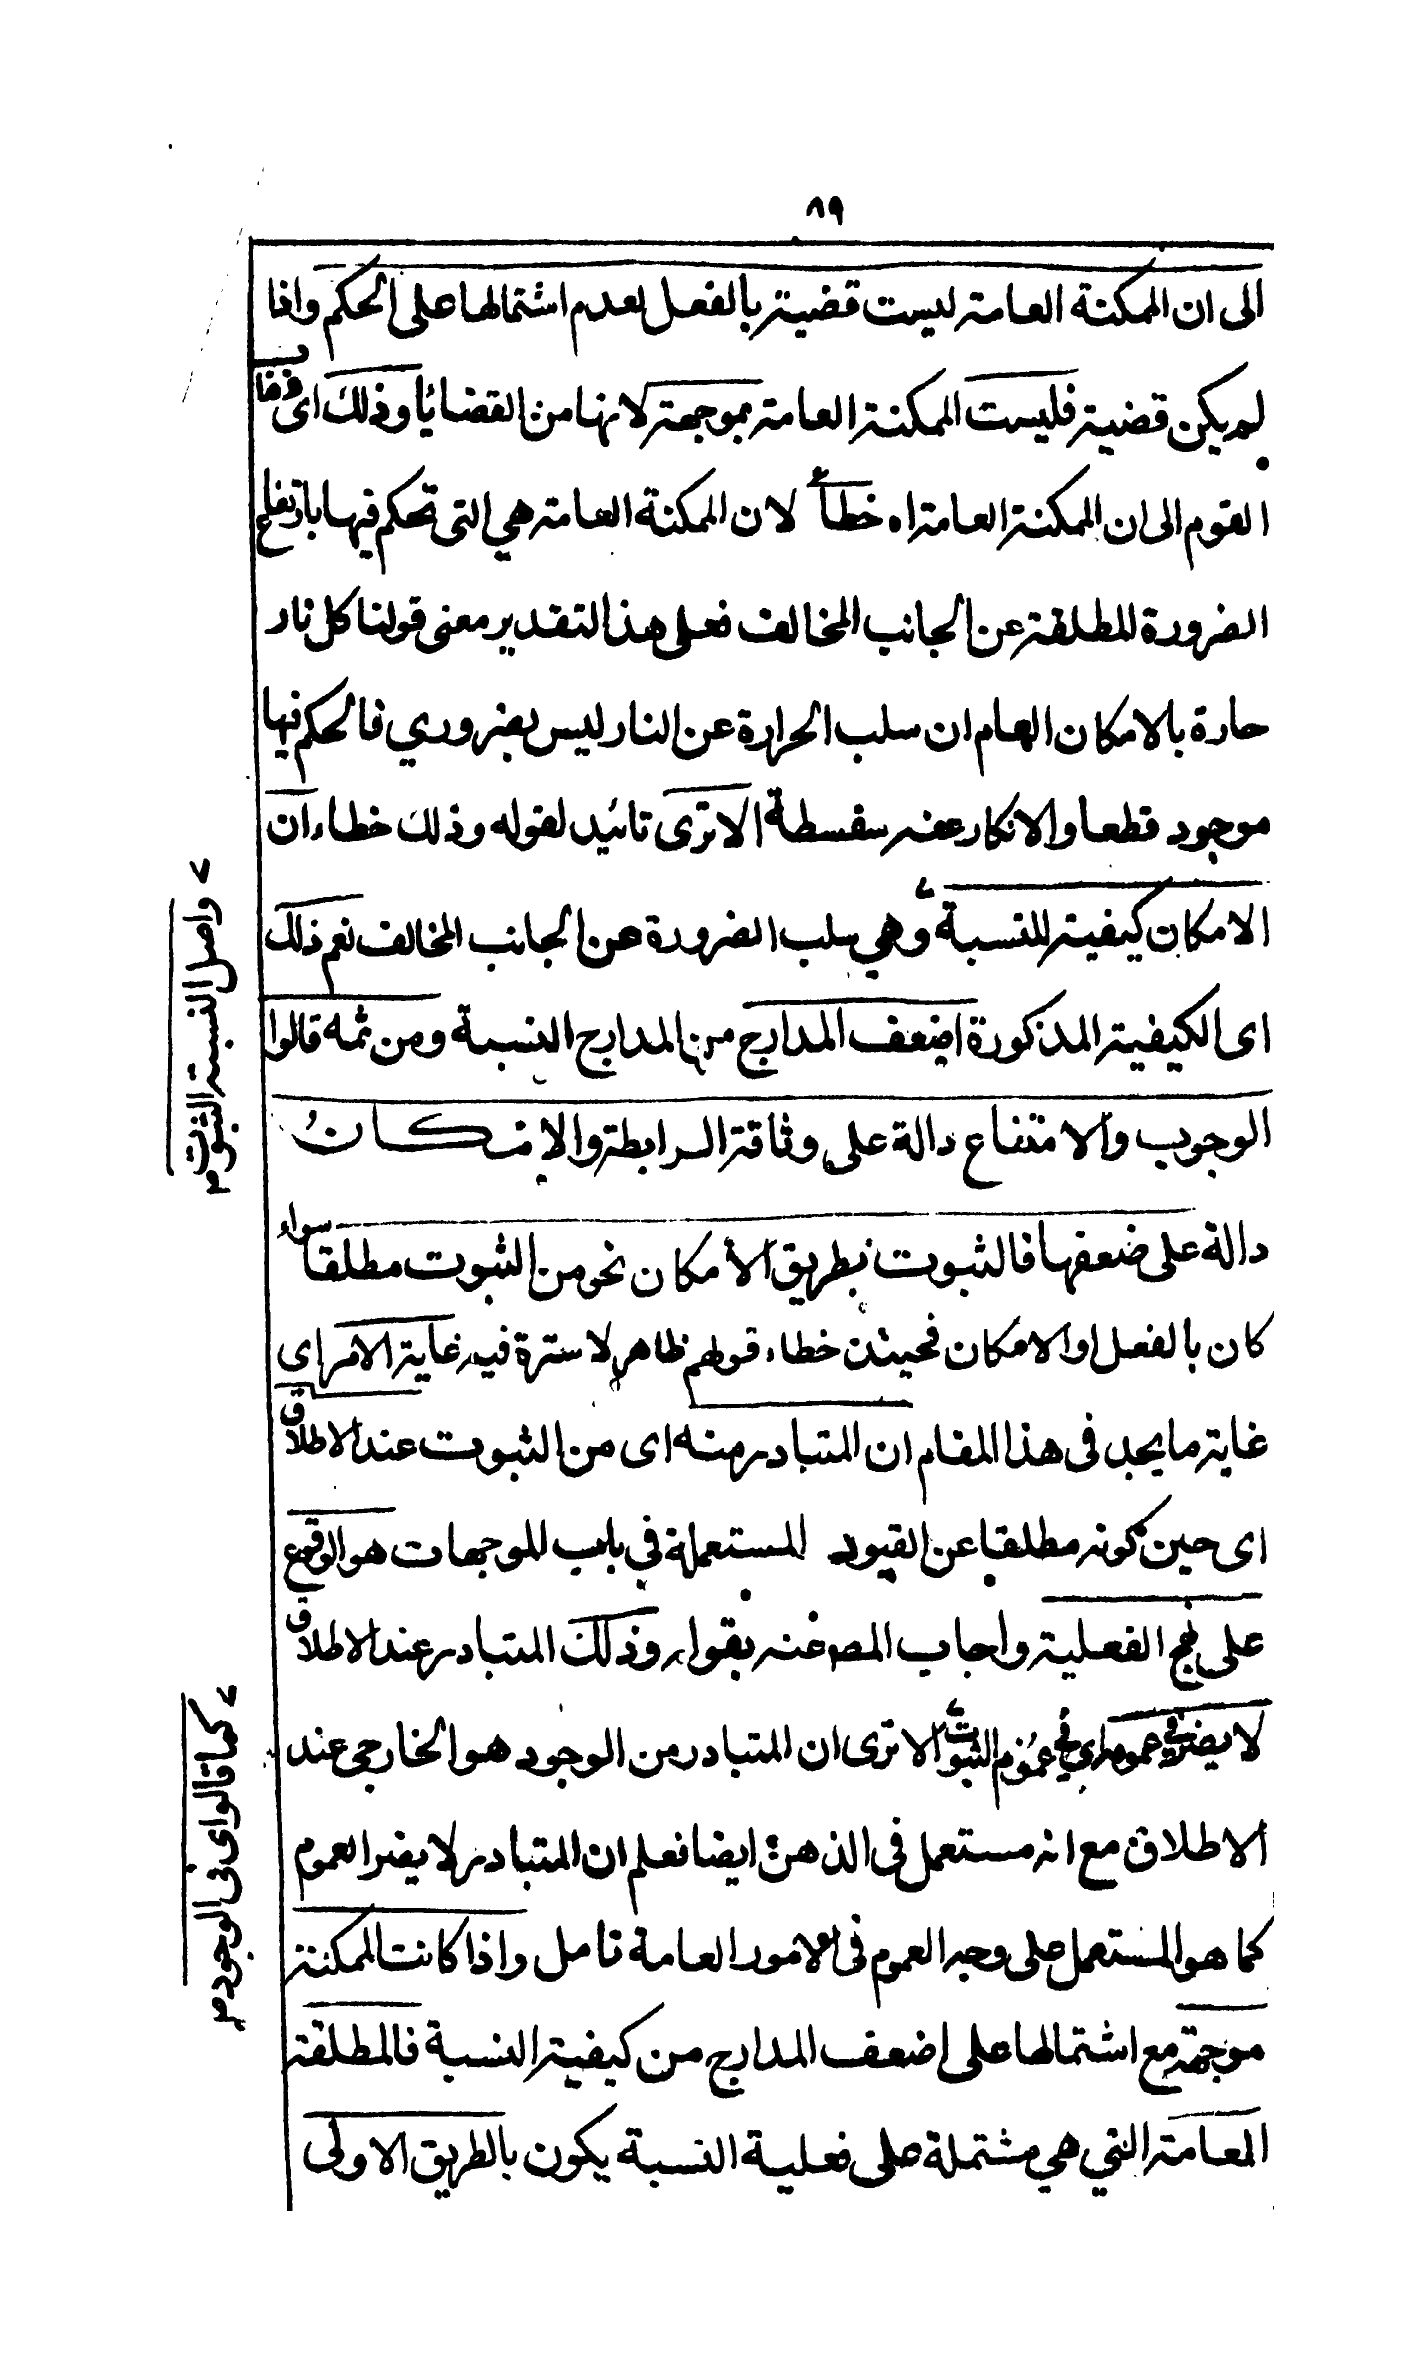 ٨٩
الى ان الممكنة العامة ليست قضية بالفعل لعدم اشتمالها على الحكم واذا
لم يكن قضية فليست الممكنة العامة بموجهة لانها من القضايا وذلك اى ذهاب
القوم الى ان الممكنة العامة اه خطأ لان الممكنة العامة هي التى تحكم فيها بارتفاع
الضرورة المطلقة عن الجانب المخالف فعلى هذا التقدير معنى قولنا كل نار
حارة بالامكان العام ان سلب الحرارة عن النار ليس بضروري فالحكم فيها
موجود قطعا والانكار عنه سفسطة الا ترى تائيد لقوله وذلك خطاء ان
الامكان كيفية للنسبة وهي سلب الضرورة عن الجانب المخالف نعم ذلك
اى الكيفية المذكورة اضعف المدارج من المدارج النسبة ومن ثمه قالوا
الوجوب والامتناع دالة على وثاقة الرابطة والامكان
دالة على ضعفها فالثبوت بطريق الأمكان نحو من الثبوت مطلقا سواء
كان بالفعل او الامكان فحينئذ خطاء قولهم ظاهر لا سترة فيه غاية الامر اى
غاية ما يجد فى هذا المقام ان المتبادر منه اى من الثبوت عند الاطلاق
اى حين كونه مطلقا عن القيود المستعملة في باب الموجهات هو الوقوع
على نهج الفعلية واجاب المصـ عنه بقوله وذلك المتبادر عند الاطلاق
لا يضر فى عمومه اى في عموم الثبوت الا ترى ان المتبادر من الوجود هو الخارجى عند
الاطلاق مع انه مستعمل فى الذهن ايضا فعلم ان المتبادر لا يضر العموم
كما هو المستعمل على وجه العموم فى الامور العامة تامل واذا كانت الممكنة
موجهة مع اشتمالها على اضعف المدارج من كيفية النسبة فالمطلقة
العامة التي هي مشتملة على فعلية النسبة يكون بالطريق الاولى
واصل النسبة الثبوت
كما قالوا اى فى الوجود